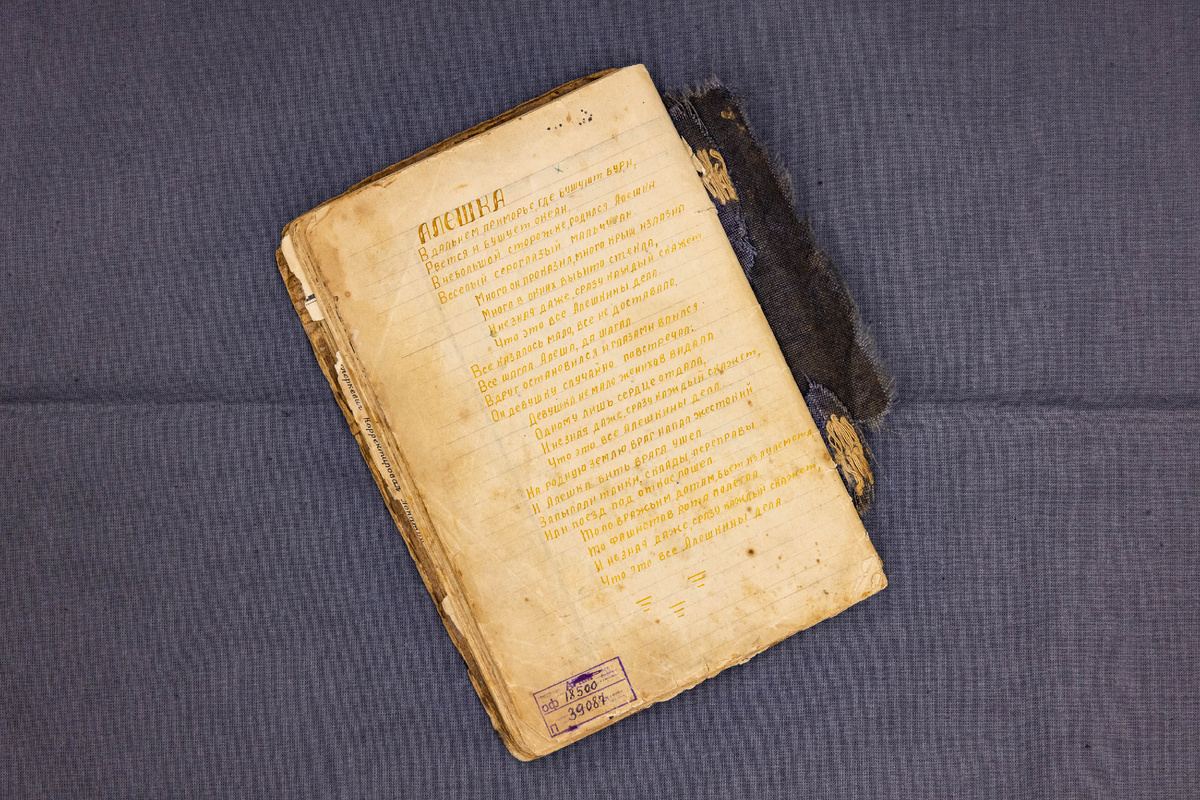 АЛЕШКА
В дальнем приморье, где бушуют бури,
Рвется и бушует океан,
В небольшой сторожке, родился Алешка
Веселый сероглазый мальчуган.
Много он проказил, много крыш излазил
Много в окнах выбито стекла,
И незная даже, сразу каждый скажет
Что это все Алешкины дела.
Все казалось мало, все не доставало,
Все шагал Алеша, да шагал
Вдруг остановился и глазами впился
Он девушку случайно повстречал.
Девушка не мало женихов видала
Одному лишь сердце отдала,
И незная даже, сразу каждый скажет,
Что это все Алешкины дела.
На родную землю враг напал жестокий
И Алешка бить врага ушел
Запылали танки, переправы
поезд под откос пошел
То по вражьим дотам, бьет из пулемета,
То фашистов рота полегла
И незная даже, сразу каждый скажет,
Что это все Алешкины дела.
ОФ 18500
П 39087
корректировал